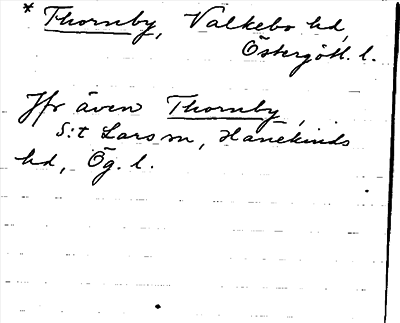 * Thornby, Valkebo hd,
Östergötl. l.
Jfr även Thornby,
S:t Lars sn, Hanekinds
hd, Ög. l.